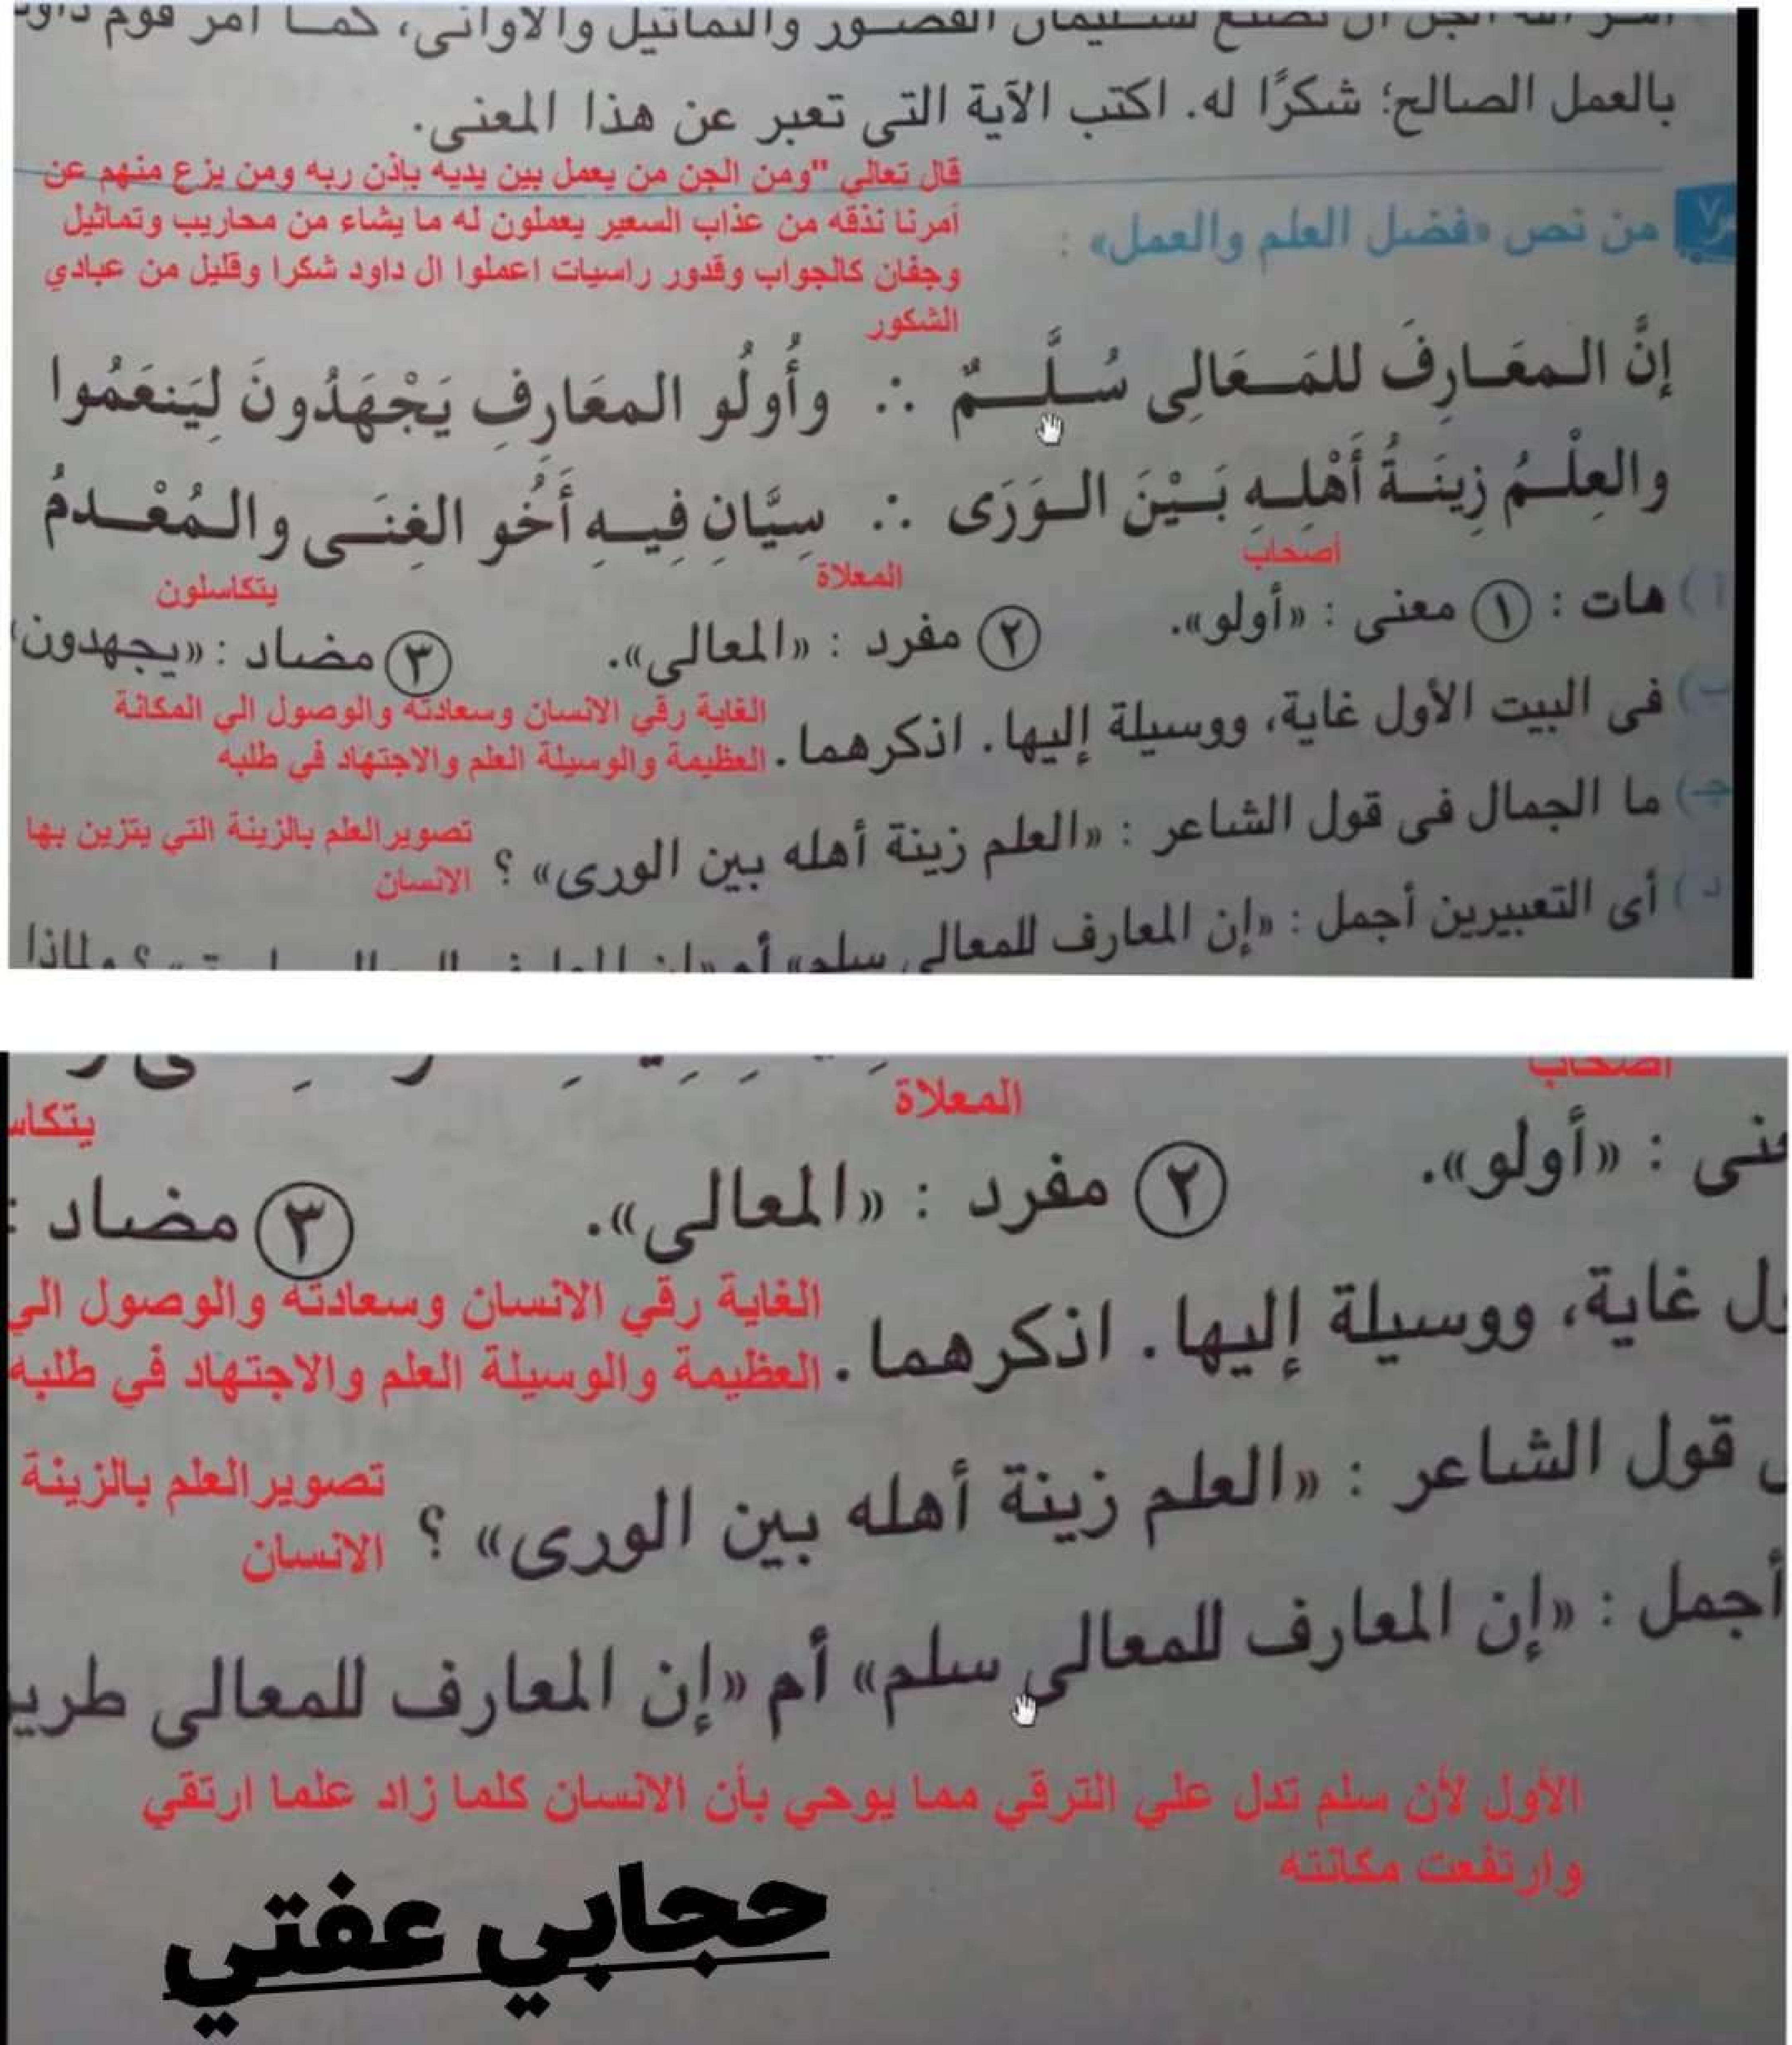 أمر الله الجن أن تصنع لسليمان القصور والتماثيل والأوانى، كما أمر قوم داود
بالعمل الصالح؛ شكرًا له. اكتب الآية التى تعبر عن هذا المعنى.
قال تعالي "ومن الجن من يعمل بين يديه بإذن ربه ومن يزع منهم عن
أمرنا نذقه من عذاب السعير يعملون له ما يشاء من محاريب وتماثيل
وجفان كالجواب وقدور راسيات اعملوا ال داود شكرا وقليل من عبادي
الشكور
س٧ من نص «فضل العلم والعمل» :
إنَّ المعَارِفَ للمَعَالِى سُلَّمٌ ∴ وأُولُو المعَارِفِ يَجْهَدُونَ لِيَنعَمُوا
والعِلْمُ زِينَةُ أَهْلِهِ بَيْنَ الوَرَى ∴ سِيَّانِ فِيهِ أَخُو الغِنَى والمُعْدمُ
أصحاب المعلاة يتكاسلون
أ ) هات : ١ معنى : «أولو». ٢ مفرد : «المعالى». ٣ مضاد : «يجهدون»
ب) فى البيت الأول غاية، ووسيلة إليها. اذكرهما.
الغاية رقي الانسان وسعادته والوصول الي المكانة
العظيمة والوسيلة العلم والاجتهاد في طلبه
جـ) ما الجمال فى قول الشاعر : «العلم زينة أهله بين الورى» ؟
تصويرالعلم بالزينة التي يتزين بها
الانسان
د ) أى التعبيرين أجمل : «إن المعارف للمعالى سلم» أم «إن المعارف للمعالى ؟ ولماذا
أصحاب المعلاة يتكاس
نى : «أولو». ٢ مفرد : «المعالى». ٣ مضاد :
ل غاية، ووسيلة إليها. اذكرهما.
الغاية رقي الانسان وسعادته والوصول الي
العظيمة والوسيلة العلم والاجتهاد في طلبه
قول الشاعر : «العلم زينة أهله بين الورى» ؟
تصويرالعلم بالزينة
الانسان
أجمل : «إن المعارف للمعالى سلم» أم «إن المعارف للمعالى طري
الأول لأن سلم تدل علي الترقي مما يوحي بأن الانسان كلما زاد علما ارتقي
وارتفعت مكانته
حجابي عفتي